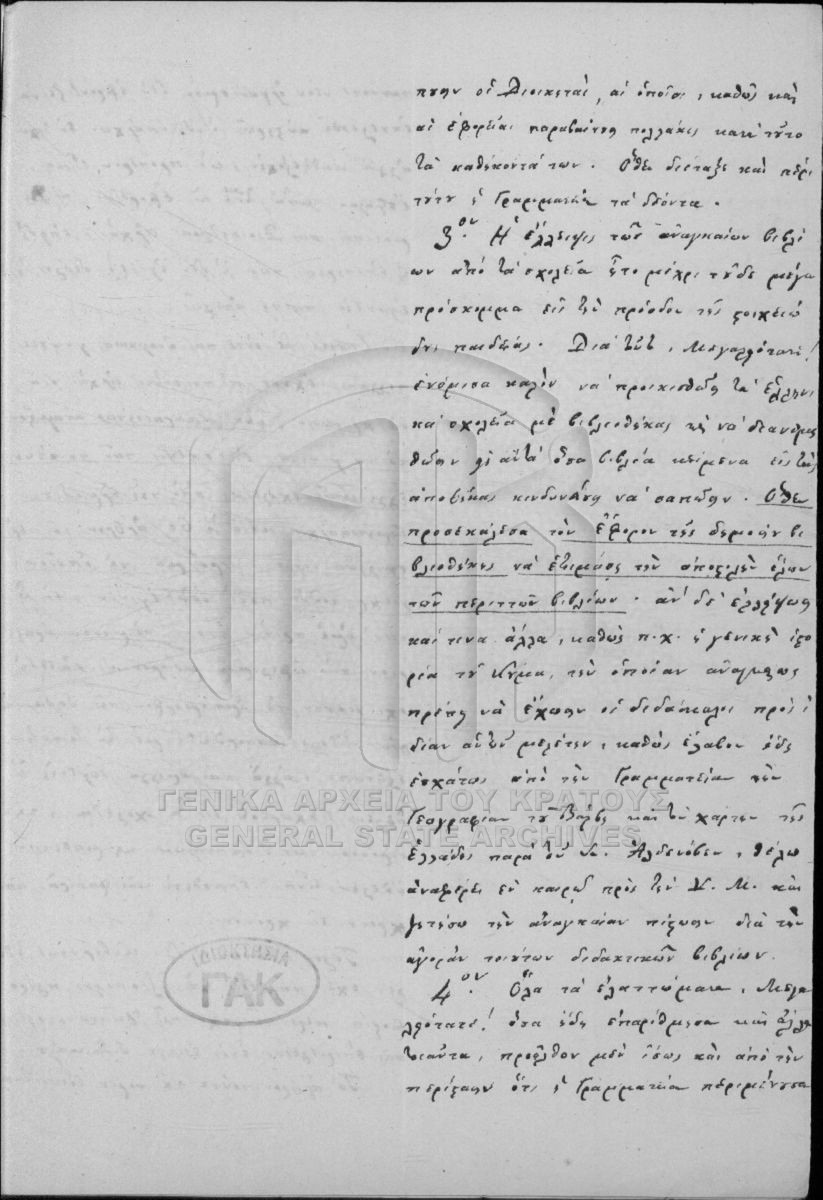 πουν οἱ Διοικηταὶ, αἱ ὁποῖαι, καθὼς καὶ
αἱ ἐφορεῖαι παραβαίνουν πολλάκις κατὰ τοῦτο
τὰ καθήκοντά των. Ὅθεν διέταξε καὶ περὶ
τούτου ἡ Γραμματεία τὰ δέοντα.
3ον. Ἡ ἔλλειψις τῶν ἀναγκαίων βιβλί
ων ἀπὸ τὰ σχολεῖα ἦτο μέχρι τοῦδε μέγα
πρόσκομμα εἰς τὴν πρόοδον τῆς στοιχειώ
δους παιδείας. Διὰ τοῦτο, Μεγαλειότατε!
ἐνόμισα καλὸν νὰ προικισθῶσι τὰ ἑλληνι
κὰ σχολεῖα μὲ βιβλιοθήκας καὶ νὰ διανεμη
θῶσιν εἰς αὐτὰ ὅσα βιβλία κείμενα εἰς τὰς
ἀποθήκας κινδυνεύουν νὰ σαπῶσιν. Ὅθεν
προσεκάλεσα τὸν Ἔφορον τῆς δημοσίου βι
βλιοθήκης νὰ ἑτοιμάσῃ τὴν ἀποστολὴν ὅλων
τῶν περιττῶν βιβλίων. ἂν δὲ ἐλλείψωσι
καί τινα ἄλλα, καθὼς π.χ. ἡ γενικὴ ἱστο
ρία τοῦ Κούμα, τὴν ὁποίαν ἀναγκαίως
πρέπει νὰ ἔχωσιν οἱ διδάσκαλοι πρὸς ἰ
δίαν αὐτῶν μελέτην, καθὼς ἔλαβον ἤδη
ἐσχάτως ἀπὸ τὴν Γραμματεία τὴν
Γεωγραφίαν τοῦ Βάρβα καὶ τὸν χάρτην τῆς
Ἑλλάδος παρὰ τοῦ Κυ. Ἀλδενόβεν, θέλω
ἀναφέρει ἐν καιρῷ πρὸς τὴν Υ. Μ. καὶ
ζητήσω τὴν ἀναγκαίαν πίστωσιν διὰ τὴν
ἀγορὰν τοιούτων διδακτικῶν βιβλίων.
4ον. Ὅλα τὰ ἐλαττώματα, Μεγα
λειότατε! ὅσα ἤδη ἀπαρίθμησα καὶ ἄλλα
τοιαῦτα, προῆλθον μὲν ἴσως καὶ ἀπὸ τὴν
περίστασιν ὅτι ἡ Γραμματεία περιμένουσα
ΓΕΝΙΚΑ ΑΡΧΕΙΑ ΤΟΥ ΚΡΑΤΟΥΣ
GENERAL STATE ARCHIVES
ΙΔΙΟΚΤΗΣΙΑ
ΓΑΚ